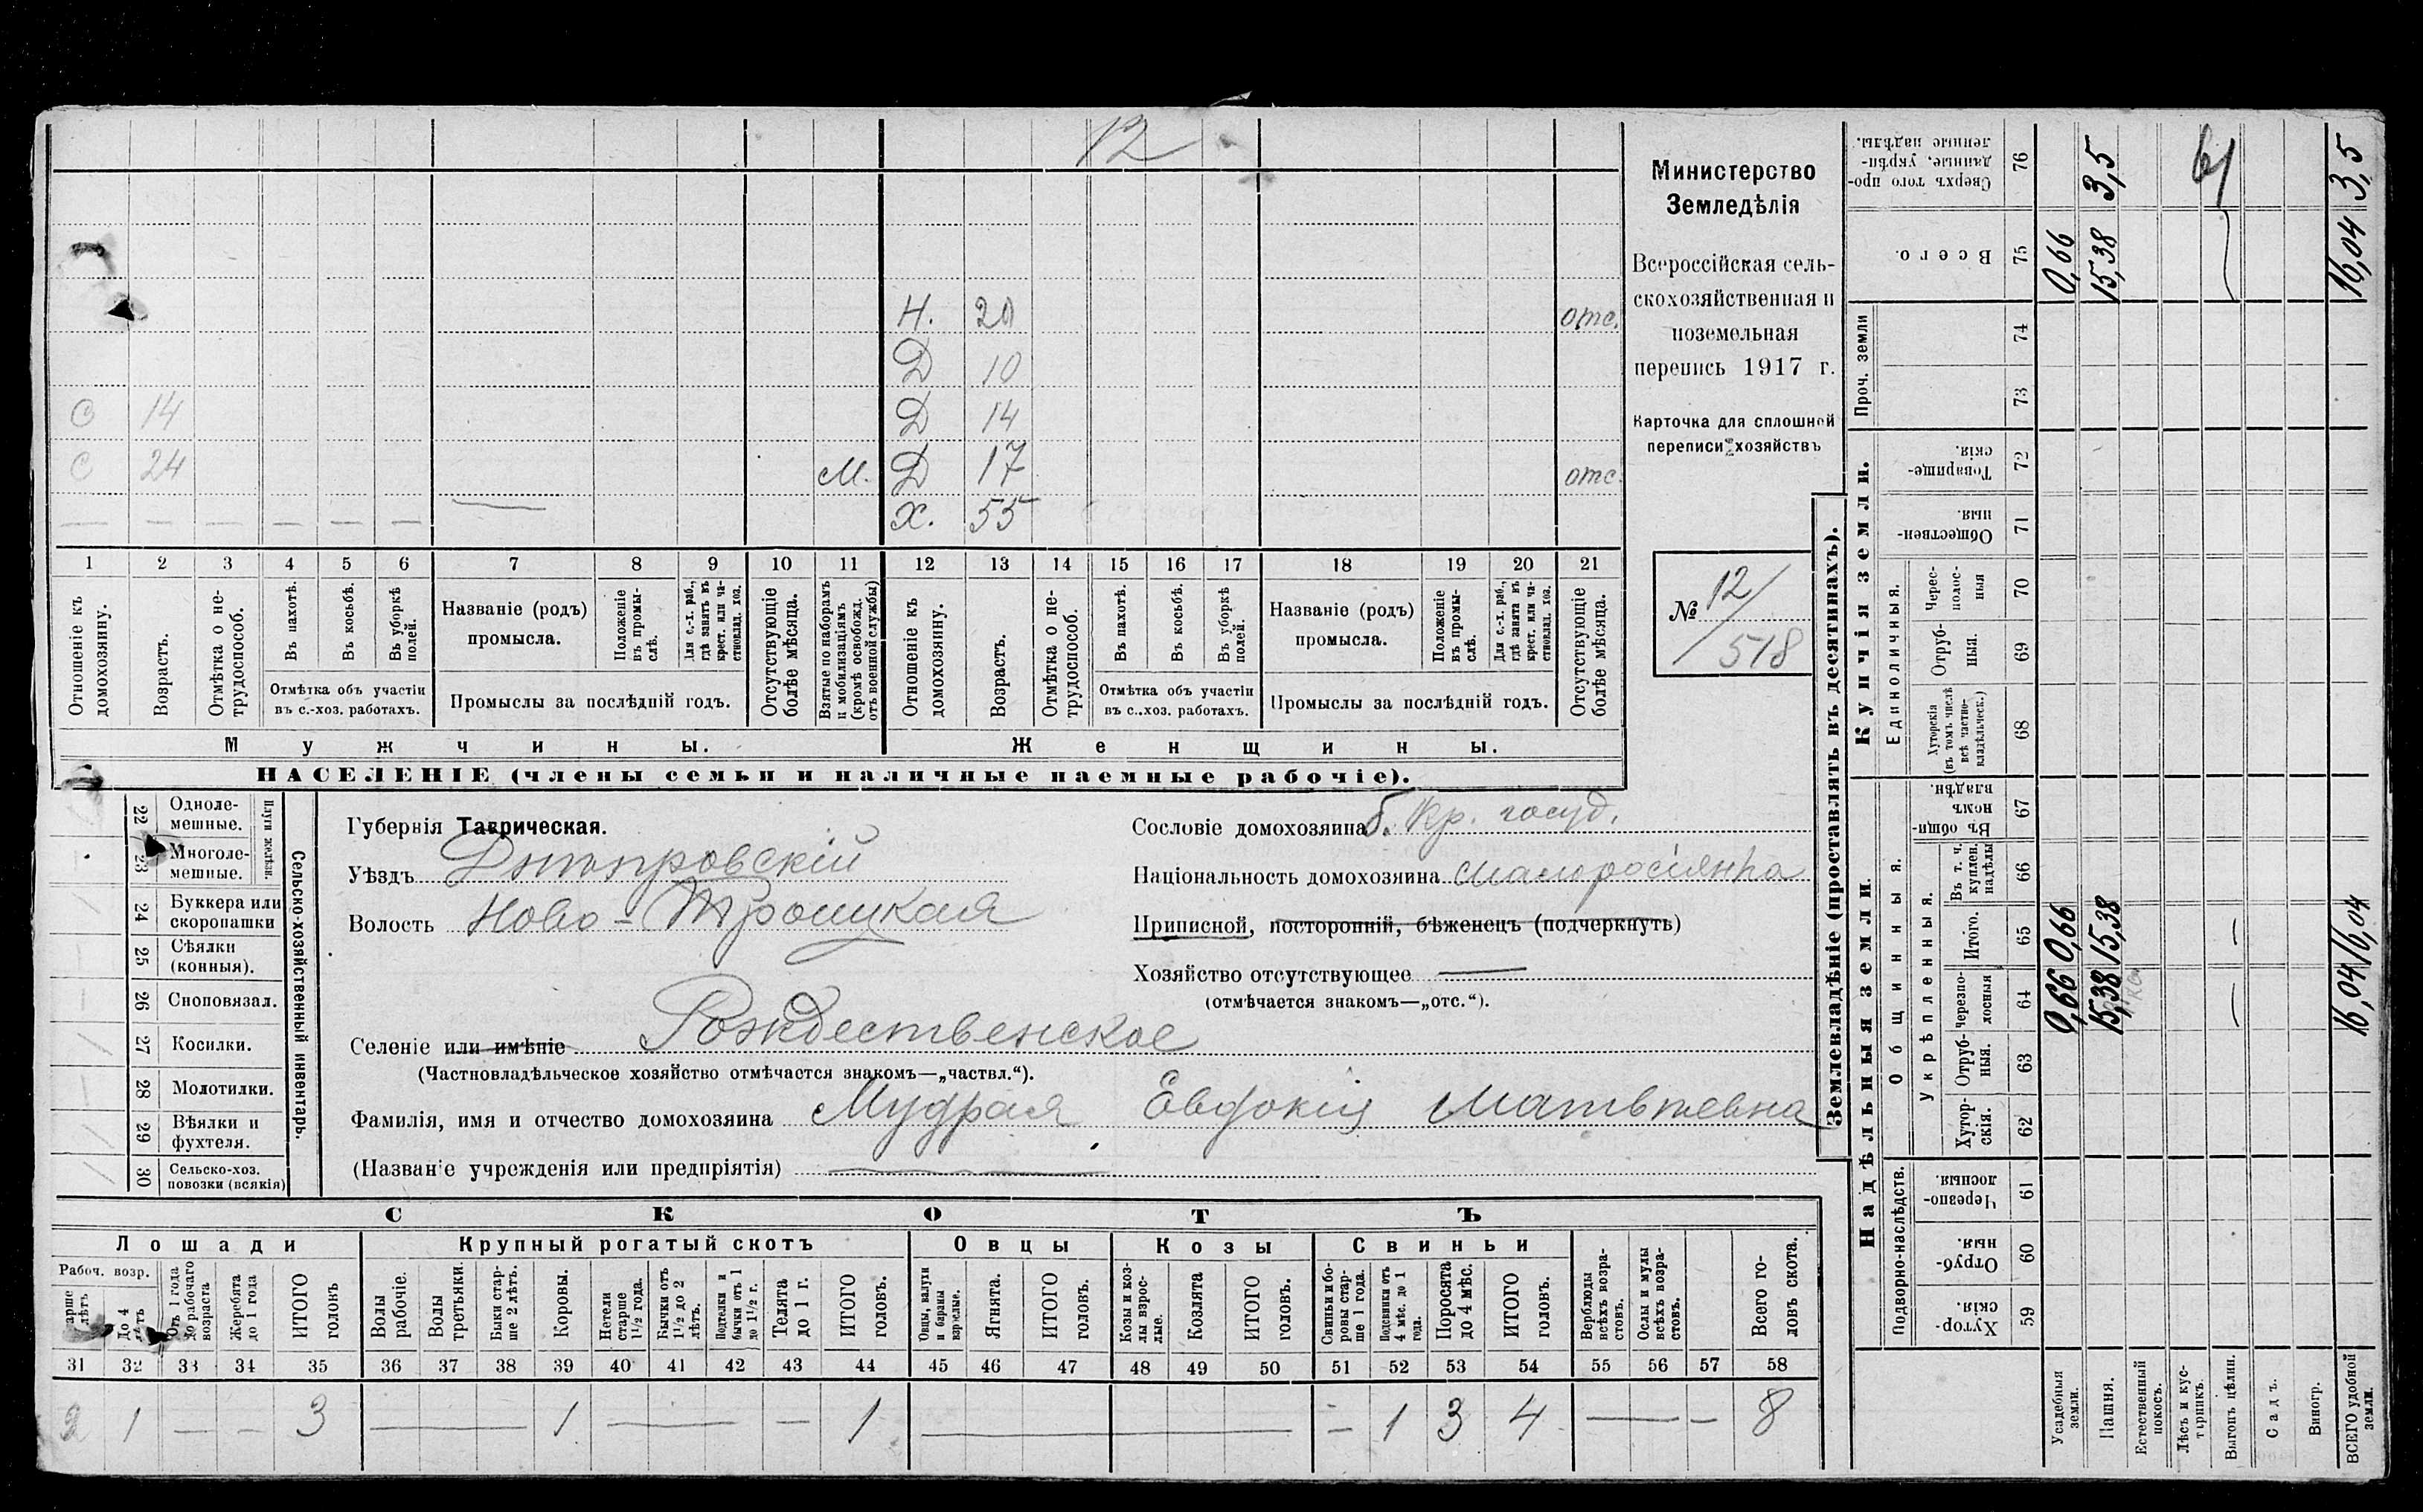 12
Н. 20 отс.
Д 10
С 14 Д 14
С 24 М. Д 17 отс.
— — — — — — — Х. 55
1 2 3 4 5 6 7 8 9 10 11 12 13 14 15 16 17 18 19 20 21
Отношеніе къ домохозяину.
Возрастъ.
Отмѣтка о нетрудоспособ.
Въ пахотѣ.
Въ косьбѣ.
Въ уборкѣ полей.
Отмѣтка объ участіи
въ с.-хоз. работахъ.
Названіе (родъ)
промысла.
Положеніе въ промыслѣ.
Для с.-х. раб., гдѣ занятъ въ крест. или частновлад. хоз.
Промыслы за послѣдній годъ.
Отсутствующіе болѣе мѣсяца.
Взятые по наборамъ и мобилизаціямъ (кромѣ освобожд. отъ военной службы)
Отношеніе къ домохозяину.
Возрастъ.
Отмѣтка о нетрудоспособ.
Въ пахотѣ.
Въ косьбѣ.
Въ уборкѣ полей.
Отмѣтка объ участіи
въ с.-хоз. работахъ.
Названіе (родъ)
промысла.
Положеніе въ промыслѣ.
Для с.-х. раб., гдѣ занята въ крест. или частновлад. хоз.
Промыслы за послѣдній годъ.
Отсутствующіе болѣе мѣсяца.
Мужчины. Женщины.
НАСЕЛЕНІЕ (члены семьи и наличные наемные рабочіе).
Министерство
Земледѣлія
Всероссійская сель-
скохозяйственная и
поземельная
перепись 1917 г.
Карточка для сплошной
переписи хозяйствъ
№ 12/
518
Сельско-хозяйственный инвентарь.
Плуги желѣзн.
22 Одноле-
мешные.
23 Многоле-
мешные.
24 Буккера или
скоропашки
25 Сѣялки
(конныя).
26 Сноповязал.
27 Косилки.
28 Молотилки.
29 Вѣялки и
фухтеля.
30 Сельско-хоз.
повозки (всякія)
Губернія Таврическая.
Уѣздъ Днѣпровскій
Волость Ново-Троицкая
Селеніе или имѣніе Рождественское
(Частновладѣльческое хозяйство отмѣчается знакомъ—„частвл.“).
Фамилія, имя и отчество домохозяина Мудрая Евдокія Матвѣевна
(Названіе учрежденія или предпріятія) —
Сословіе домохозяина б. кр. госуд.
Національность домохозяина малоросіянка
Приписной, посторонній, бѣженецъ (подчеркнуть)
Хозяйство отсутствующее —
(отмѣчается знакомъ—„отс.“).
СКОТЪ
Лошади Крупный рогатый скотъ Овцы Козы Свиньи
Рабоч. возр.
До 4 лѣтъ
Отъ 1 года до рабочаго возраста
Жеребята до 1 года
ИТОГО головъ
Волы рабочіе.
Волы третьяки.
Быки старше 2 лѣтъ.
Коровы.
Нетели старше 1½ года.
Бычки отъ 1½ до 2 лѣтъ.
Подтелки и бычки отъ 1 до 1½ г.
Телята до 1 г.
ИТОГО головъ.
Овцы, валухи и бараны взрослые.
Ягнята.
ИТОГО головъ.
Козы и козлы взрослые.
Козлята
ИТОГО головъ.
Свиньи боровы старше 1 года.
Подсвинки отъ 4 мѣс. до 1 года.
Поросята до 4 мѣс.
ИТОГО головъ.
Верблюды всѣхъ возрастовъ.
Ослы и мулы всѣхъ возрастовъ.
Всего головъ скота.
31 32 33 34 35 36 37 38 39 40 41 42 43 44 45 46 47 48 49 50 51 52 53 54 55 56 57 58
2 1 — — 3 — 1 — — 1 — — 1 3 4 — — 8
Землевладѣніе (проставлять въ десятинахъ).
Надѣльныя земли.
Купчія земли.
Проч. земли
Подворно-наслѣдств.
Общинныя.
Укрѣпленныя.
Единоличныя.
Хуторскія. 59
Отрубныя. 60
Черезполосныя. 61
Хуторскія. 62
Отрубныя. 63
Черезполосныя 64
Итого. 65
Въ т. ч. куплен. надѣлы 66
Въ общинномъ владѣн. 67
Хуторскія (въ томъ числѣ всѣ частновладѣльческ.) 68
Отрубныя. 69
Чересполосныя 70
Общественныя. 71
Товарищескія. 72
73
74
Всего. 75
Сверхъ того проданные, укрѣпленные надѣлы. 76
Усадебныя земли. 0,66 0,66 0,66
Пашня. 15,38 15,38 15,38 3,5
Естественный покосъ.
Лѣсъ и кустарникъ.
Выгонъ цѣлин. — —
Садъ.
Виногр.
ВСЕГО удобной земли. 16,04 16,04 16,04 3,5